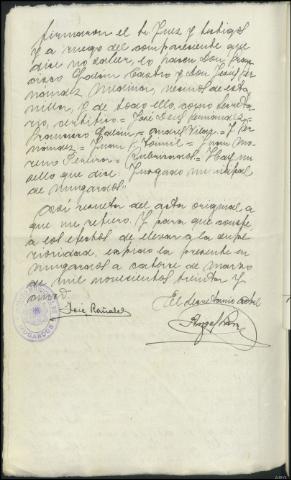 firmaron el Sr Juez y testigos
y a ruego del compareciente que
dice no saber, lo hacen Don Fran-
cisco Galán Castro y Don José Fer-
nandez Medina, vecinos de esta
villa, y de todo ello, como Secreta-
rio, certifico = José Fernandez
Francisco Galán = = Fer-
nandez = Juan F. = Juan Mo-
reno = Rubricados = Hay un
sello que dice: Juzgado municipal
de Mugardos".
Así resulta del acta original a
que me refiero. Y para que conste
a los efectos de elevar a la supe-
rioridad, expido la presente en
Mugardos a catorce de marzo
de mil novecientos treinta y
El Secretario
José
Angel
MUGARDOS